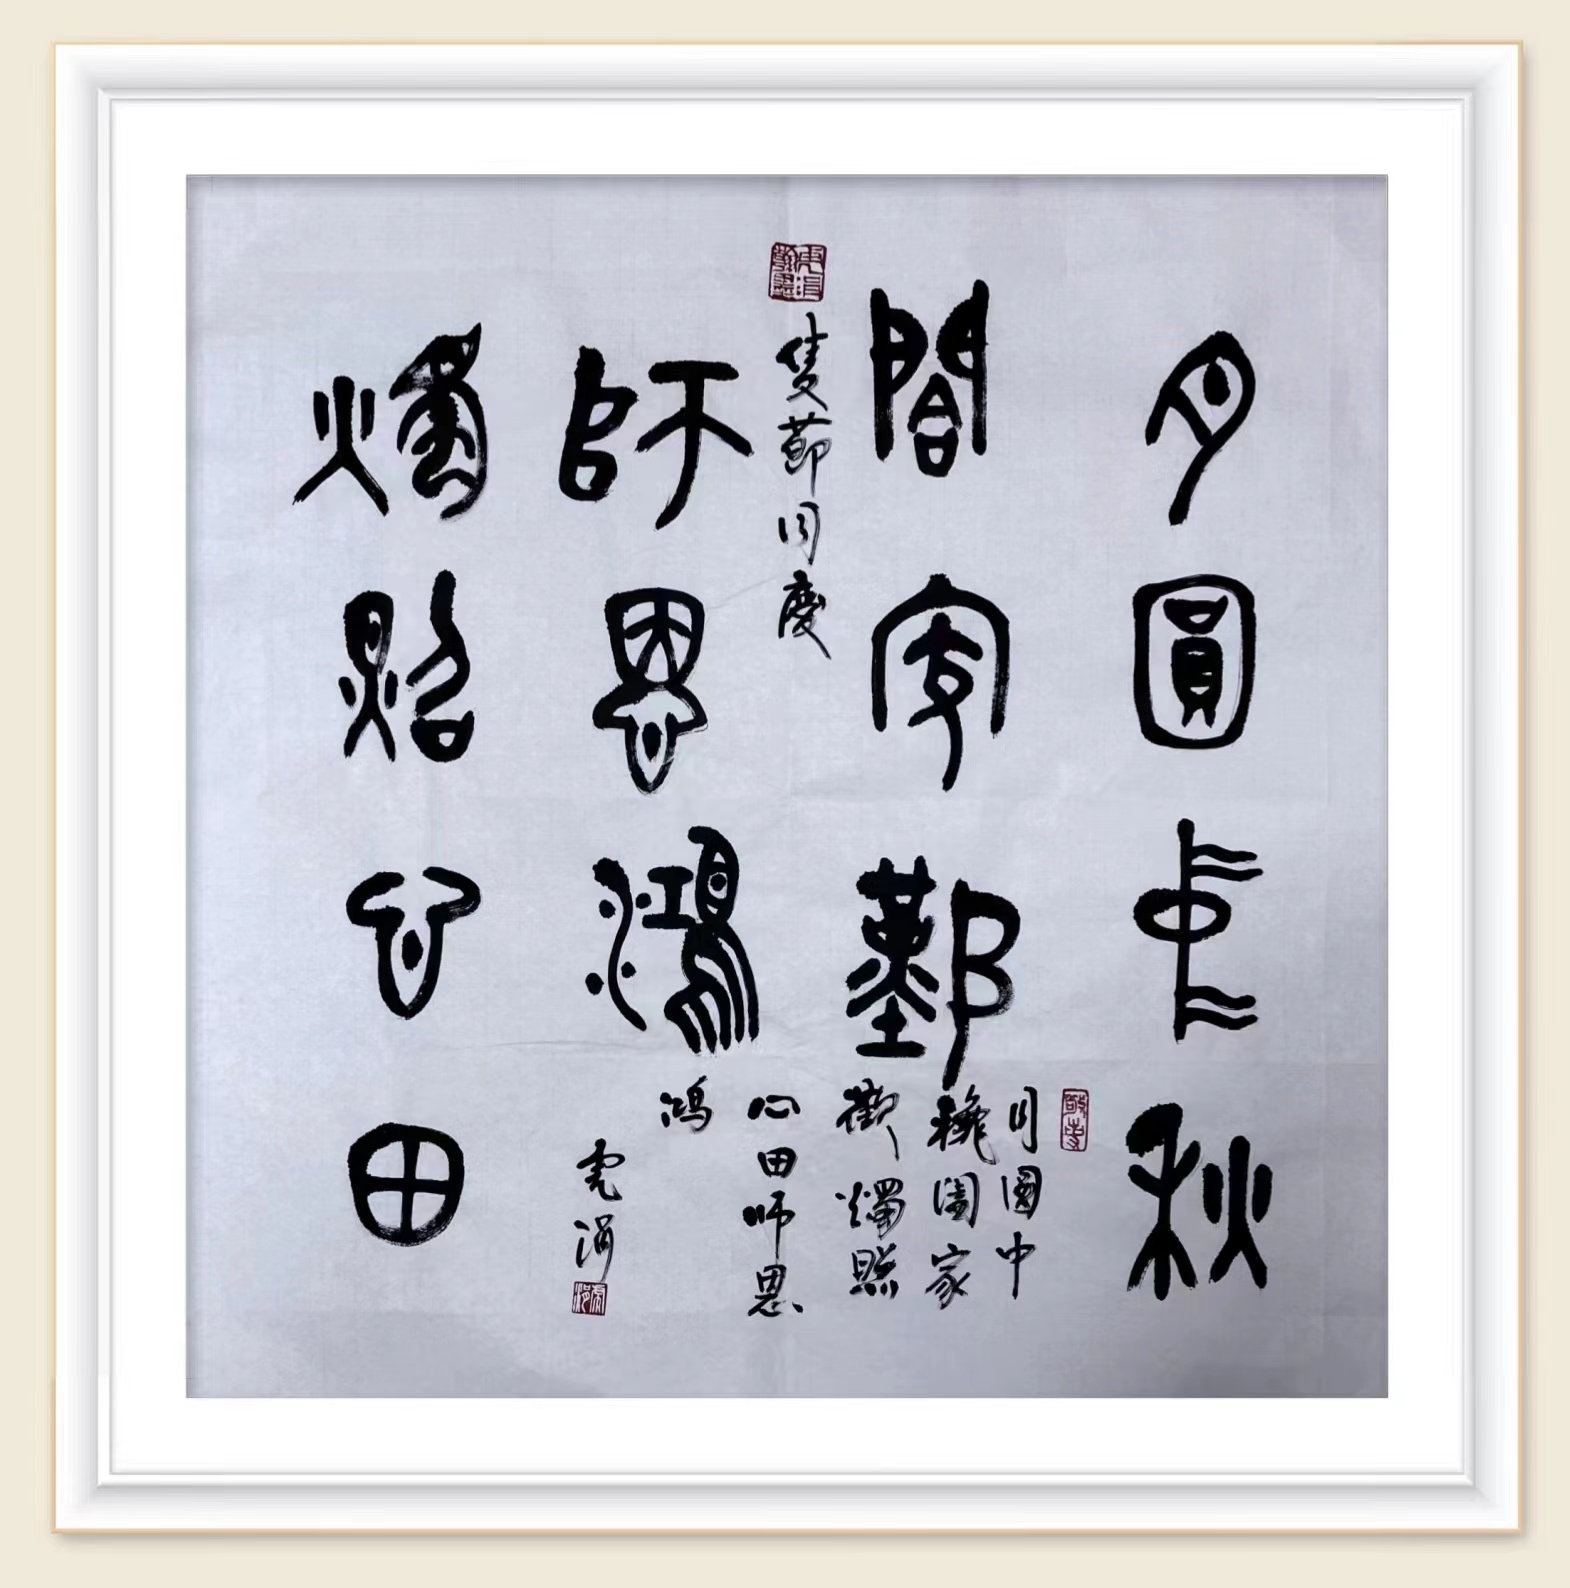 月圓中秋
閤家
雙節同慶
師恩鴻
燭照心田
月圓中
穐闔家
歡燭照
心田師恩
鴻